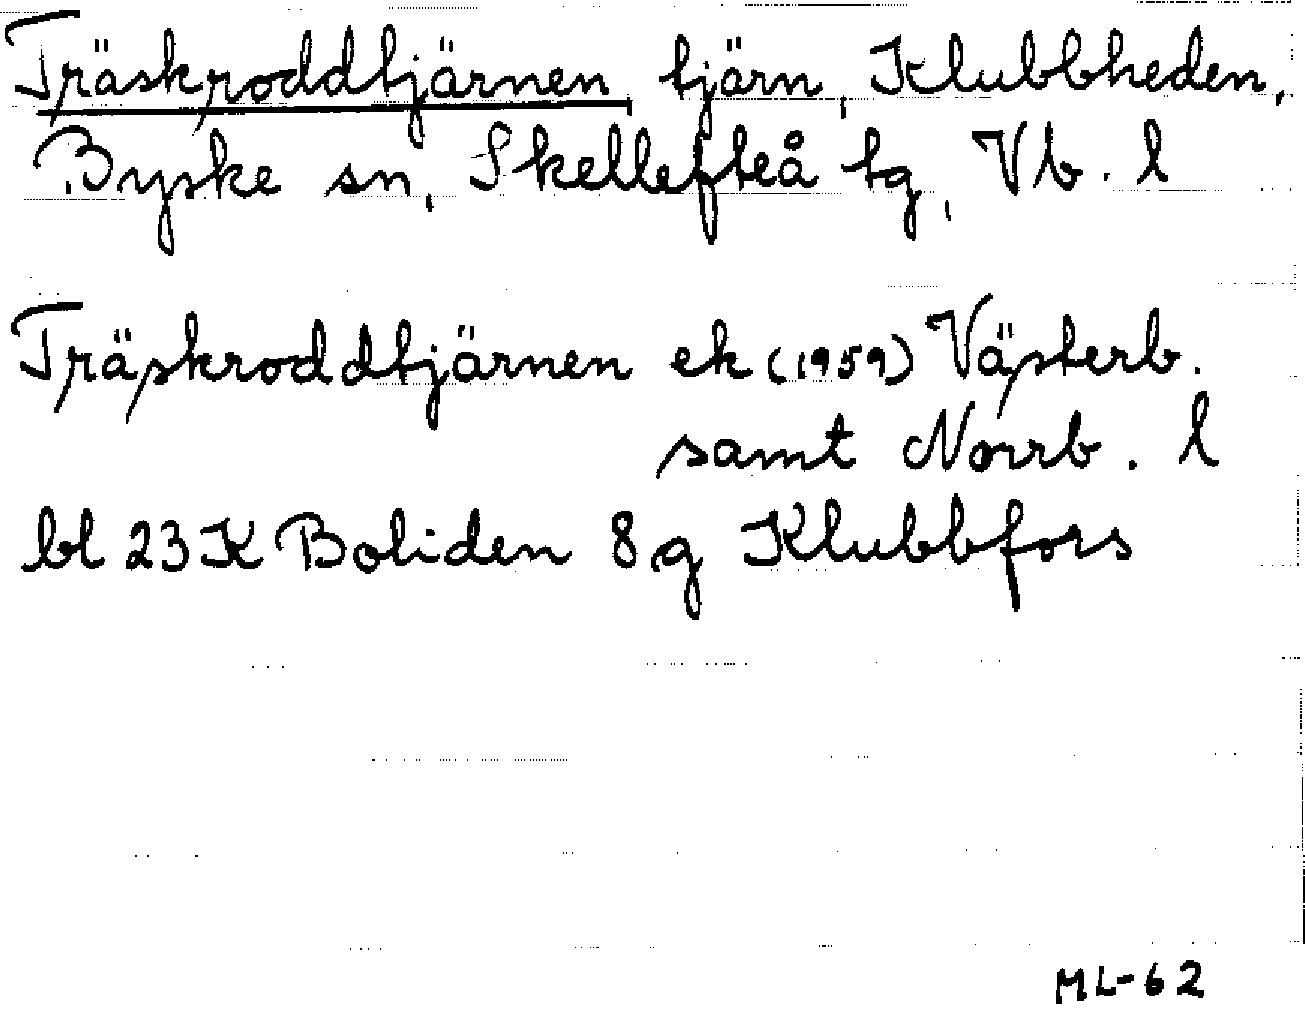 Träskroddtjärnen, tjärn, Klubbheden,
Byske sn, Skellefteå tg, Vb. l
Träskroddtjärnen ek (1959) Västerb.
samt Norrb. l
bl 23 K Boliden 8 g Klubbfors
ML-62